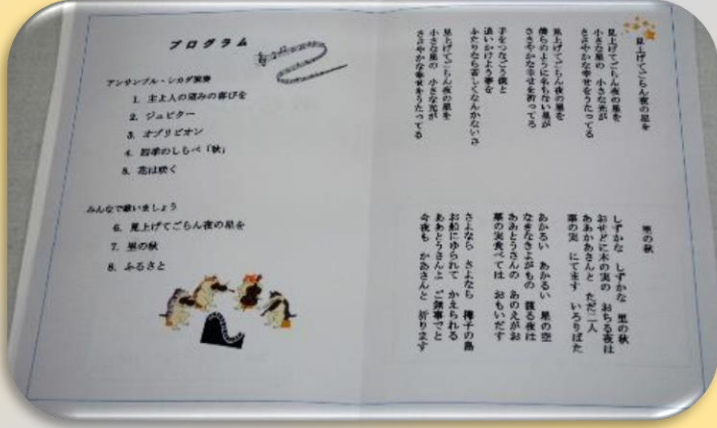 プログラム
アンサンブル・シカダ演奏
1. 主よ人の望みの喜びを
2. ジュピター
3. オブリビオン
4. 四季のしらべ「秋」
5. 花は咲く
みんなで歌いましょう
6. 見上げてごらん夜の星を
7. 里の秋
8. ふるさと
見上げてごらん夜の星を
見上げてごらん夜の星を
小さな星の 小さな光が
ささやかな幸せをうたってる
見上げてごらん夜の星を
僕らのように名もない星が
ささやかな幸せを祈ってる
手をつなごう僕と
追いかけよう夢を
ふたりなら苦しくなんかないさ
見上げてごらん夜の星を
小さな星の 小さな光が
ささやかな幸せをうたってる
里の秋
しずかな しずかな 里の秋
おせどに木の実の おちる夜は
ああかあさんと ただ二人
栗の実 にてます いろりばた
あかるい あかるい 星の空
なきなきよがもの 渡る夜は
ああとうさんの あのえがお
栗の実食べては おもいだす
さよなら さよなら 椰子の島
お船にゆられて かえられる
ああとうさんよ ご無事でと
今夜も かあさんと 祈ります